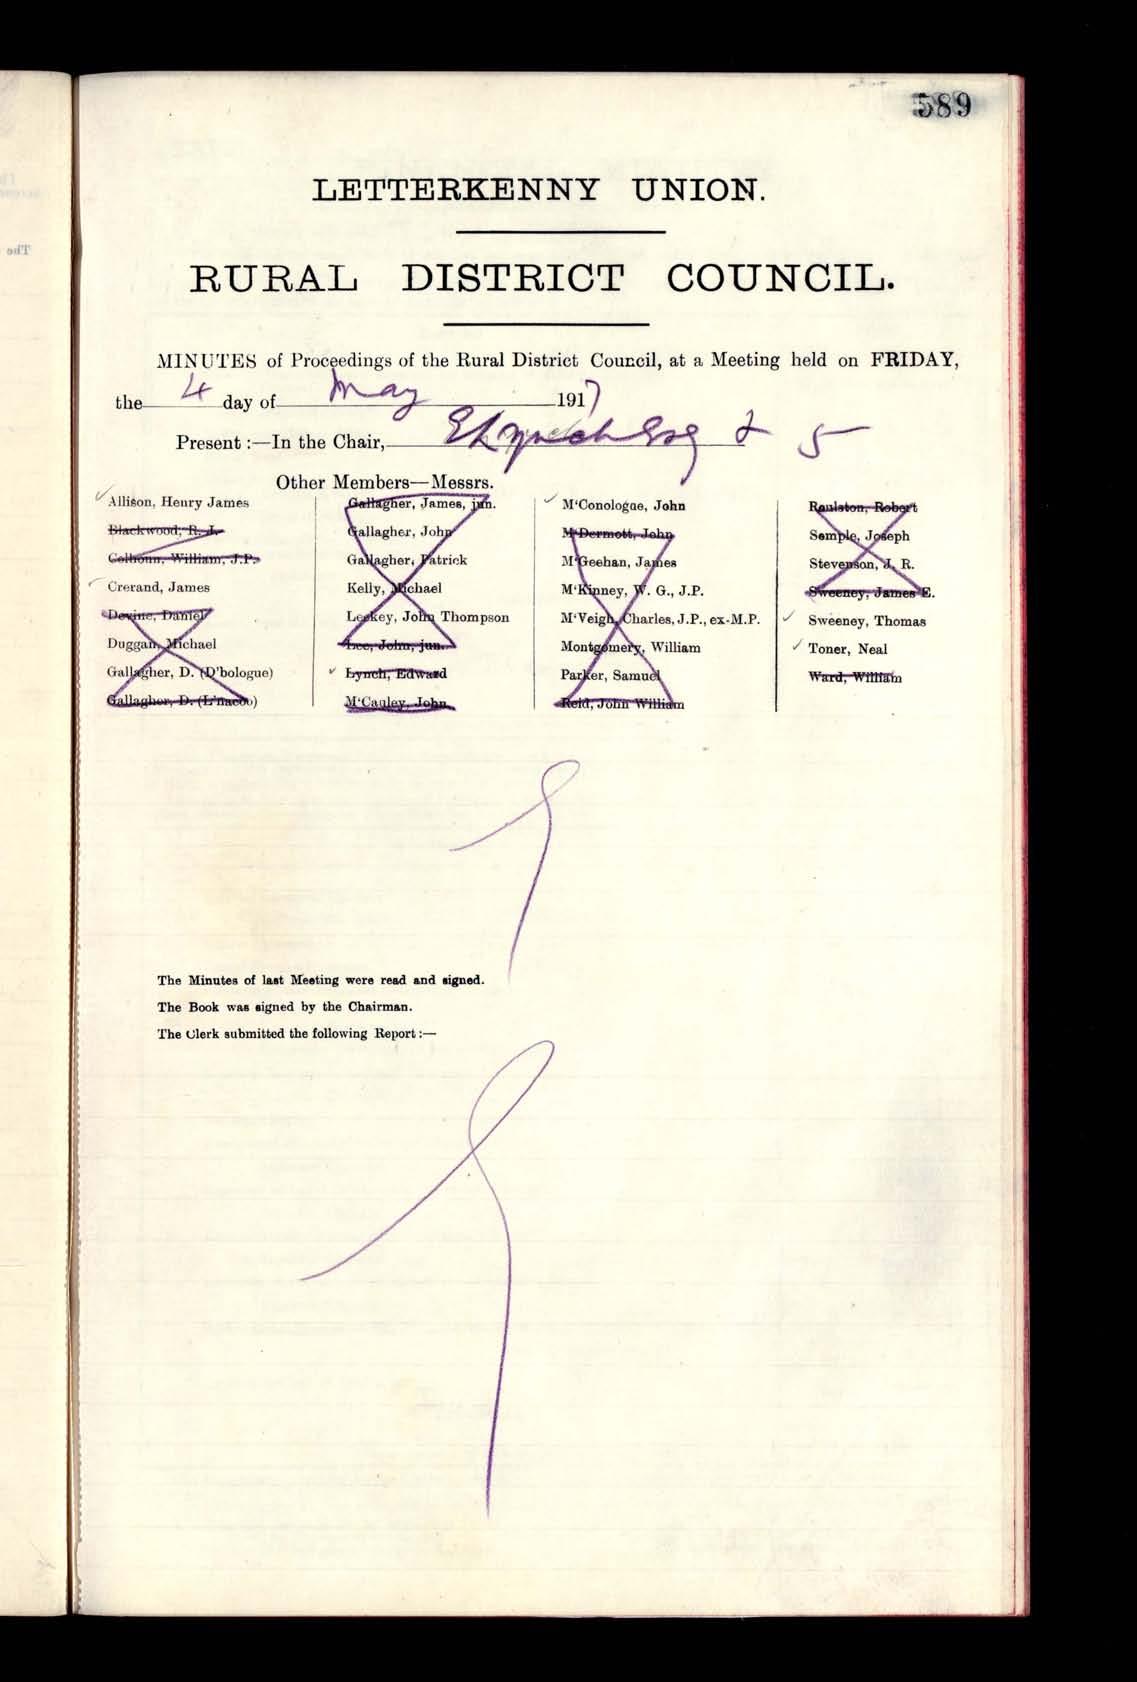 589
LETTERKENNY UNION.
RURAL DISTRICT COUNCIL.
MINUTES of Proceedings of the Rural District Council, at a Meeting held on FRIDAY,
the 4 day of May 1917
Present :—In the Chair, E Lynch Esq & 5
Other Members—Messrs.
Allison, Henry James
Blackwood, R. J.
Colhoun, William, J.P.
Crerand, James
Devine, Daniel
Duggan, Michael
Gallagher, D. (D'bologue)
Gallagher, D. (L'nacoo)
Gallagher, James, jun.
Gallagher, John
Gallagher, Patrick
Kelly, Michael
Leckey, John Thompson
Lee, John, jun.
Lynch, Edward
M'Cauley, John
M'Conologue, John
M'Dermott, John
M'Geehan, James
M'Kinney, W. G., J.P.
M'Veigh, Charles, J.P., ex-M.P.
Montgomery, William
Parker, Samuel
Reid, John William
Raulston, Robert
Semple, Joseph
Stevenson, J. R.
Sweeney, James E.
Sweeney, Thomas
Toner, Neal
Ward, William
The Minutes of last Meeting were read and signed.
The Book was signed by the Chairman.
The Clerk submitted the following Report :—